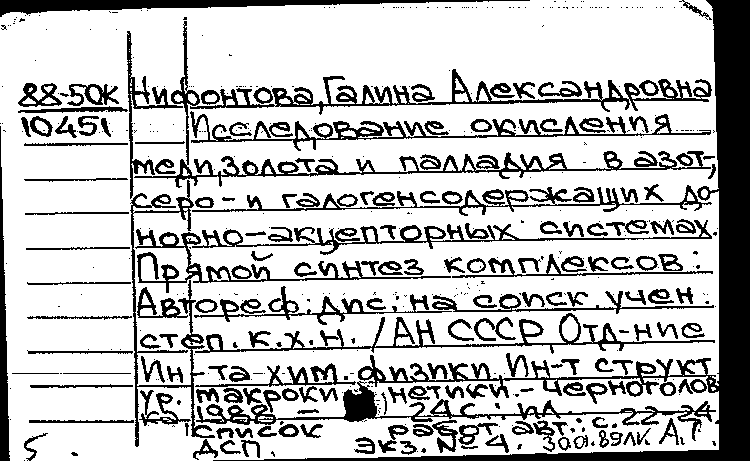 88-50К Нифонтова, Галина Александровна
10451 Исследование окисления
меди, золота и палладия в азот-,
серо- и галогенсодержащих до-
норно-акцепторных системах.
Прямой синтез комплексов:
Автореф. дис. на соиск. учен.
степ. к.х.н. / АН СССР, Отд-ние
Ин-та хим. физики, Ин-т структ
ур. макроки нетики. - Черноголов
ка 1988 - 24 с.: ил.
список работ авт.: с. 22-24.
5. ДСП. Экз. № 4. 30.01.89